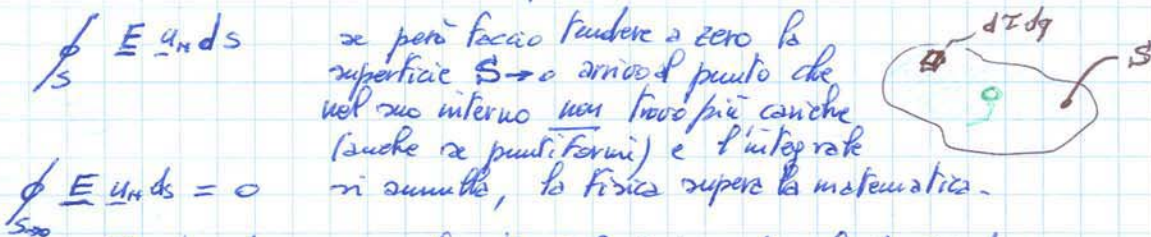 ∮_S E u_N ds se però faccio tendere a zero la
superficie S→0 arrivo al punto che
nel suo interno non trovo più cariche
(anche se puntiformi) e l'integrale
∮_{S→0} E u_N ds = 0 si annulla, la Fisica supera la matematica.
dτ dq
S